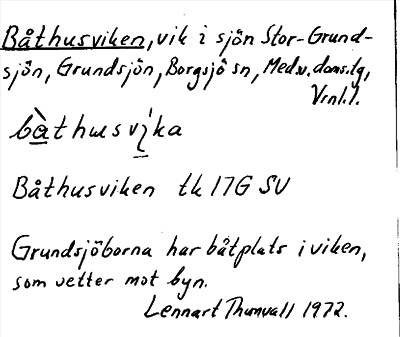 Båthusviken, vik i sjön Stor-Grund-
sjön, Grundsjön, Borgsjö sn, Med.v. doms.tg,
Vrnl.l.
bàthusvika
Båthusviken tk 17G SV
Grundsjöborna har båtplats i viken,
som vetter mot byn.
Lennart Thunvall 1972.